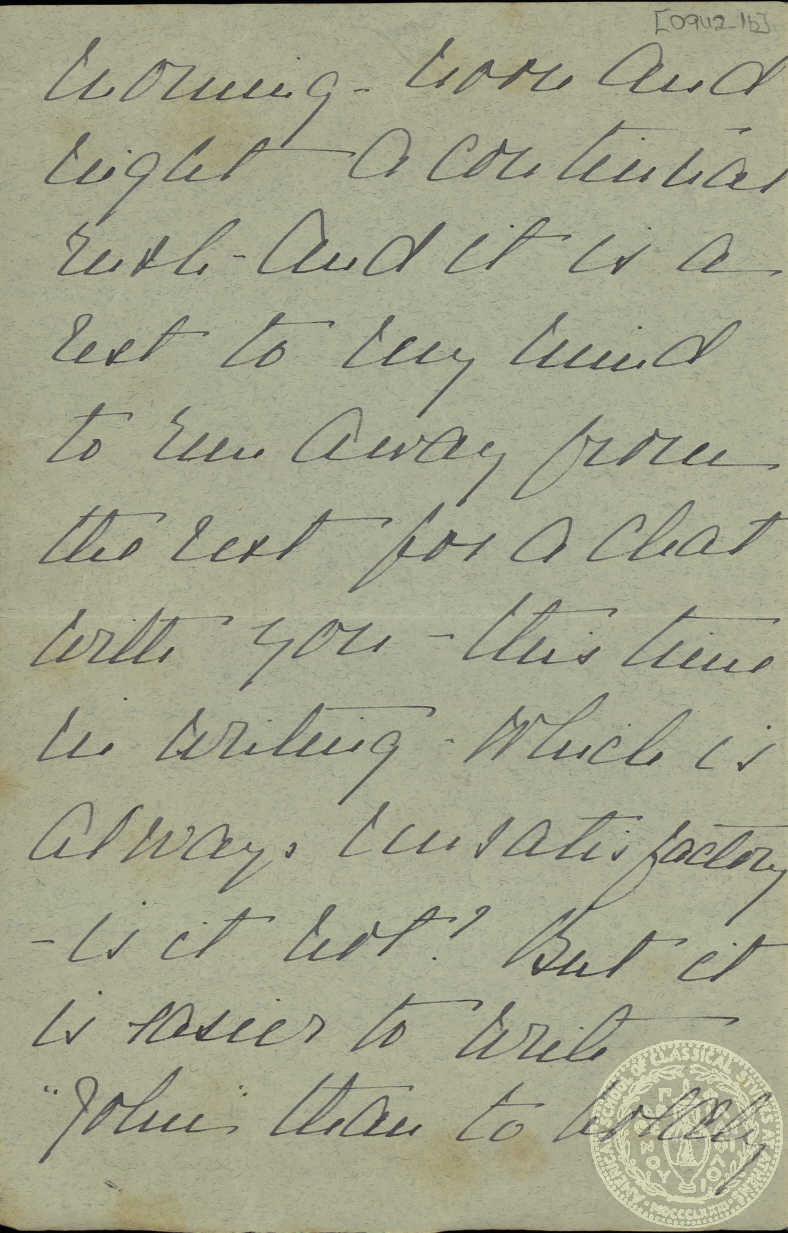 [0942-1b]
morning - noon and
night a continual
rush - and it is a
rest to my mind
to run away from
the rest for a chat
with you - this time
in writing - which is
always unsatisfactory
- is it not? But it
is easier to write
"John" than to
AMERICAN SCHOOL OF CLASSICAL STUDIES AT ATHENS
MDCCCLXXXI